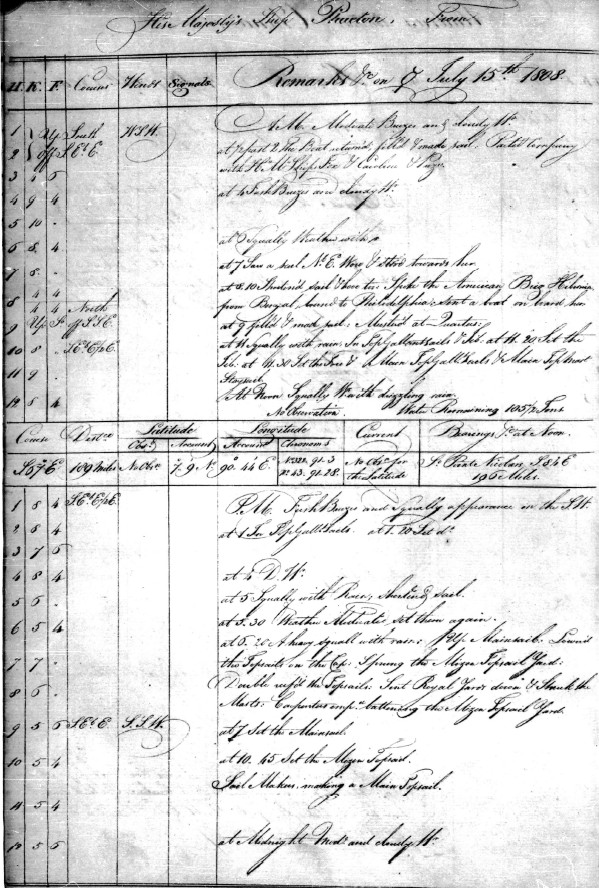 His Majesty's Ship Phaeton, From
H. K. F. Courses Winds Signals Remarks &c. on July 15th 1808.
A M. Moderate Breezes and cloudy Wr.
1 Up South W.S.W.
at past 2 the Boat returned, fill'd & made sail. Parted Company
2 off S.Et.E.
with H. M. Ships Fox & Caroline &
3 4 5
at 4 Fresh Breezes and cloudy Wr.
4 9 4
5 10 -
at 6 Squally Weather with
6 8 4
at 7 Saw a sail Nt. E. Wore & stood towards her
7 8 -
at 8.10 Shorten'd sail & hove too. Spoke the American Brig
8 4 4
from Bengal bound to Philadelphia: sent a boat on board her
4 4 North
at 9 fill'd & made sail: Muster'd at Quarters:
9 Up off
at 11 Squally with rain: In TopGallantsails & Jib. at 11.20 Set the
10 8 -
Jib. at 11.30 Set the Fore & Main TopGallt Sails & Main Topmast
11 9
Staysail
At Noon Squally Wr. with drizzling rain
12 8 4
No Observation. Water Remaining 105½ Tons
Course Distce Latitude Longitude Current Bearings &c at Noon.
Obsd. Account Account Chronomr
S.67°E 189 Miles No Obsn 7. 9. N. 90. 44 E. 91.3 No Obsn for Pt. Nicobar S 84 E
No 43. 91.28. the Latitude 196 Miles.
1 8 4 P. M. Fresh Breezes and Squally appearance in the S.W.
2 8 4 at 1 In TopGallt Sails. at 1.20 Set do.
3 7 6
4 8 4 at 4 Do. Wr.
5 6 - at 5 Squally with Rain, shorten'd sail.
at 5.30 Weather Moderate, set them again.
6 5 4
at 6.20 A heavy Squall with rain: Up Mainsail. Lower'd
7 7 - the Topsails on the Cap: Sprung the Mizen Topsail Yard:
Double reef'd the Topsails. Sent Royal Yards down & Struck the
8 6 -
Masts: Carpenters empd. battening the Mizen Topsail Yard.
9 5 6 S.Et.E S.S.W. at 7 Set the Mainsail.
10 5 4 at 10.45 Set the Mizen Topsail.
Sail Makers making a Main Topsail.
11 5 4
12 5 6 at Midnight Modte and cloudy Wr.